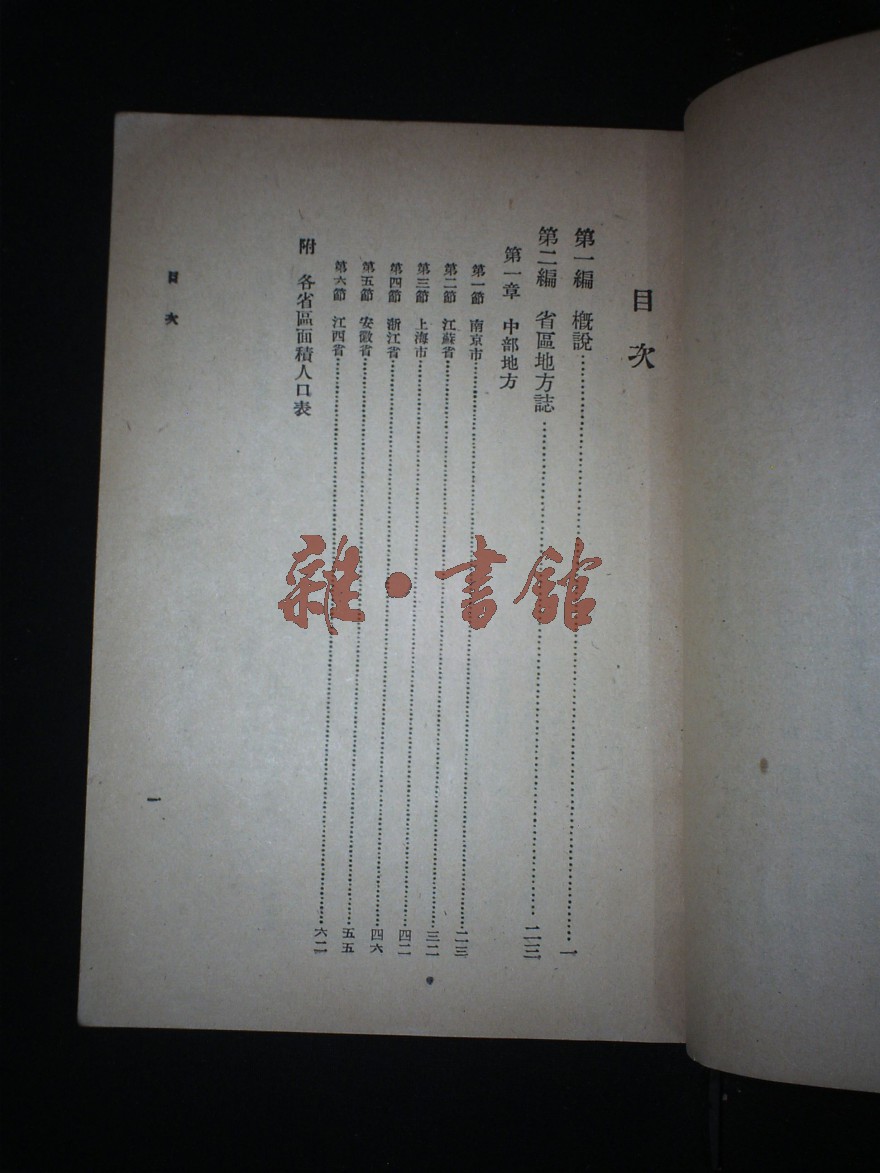 目次
第一編 概說……一
第二編 省區地方誌……二三
第一章 中部地方
第一節 南京市……二三
第二節 江蘇省……三二
第三節 上海市……四二
第四節 浙江省……四六
第五節 安徽省……五五
第六節 江西省……六二
附 各省區面積人口表
目次
一
雜·書館